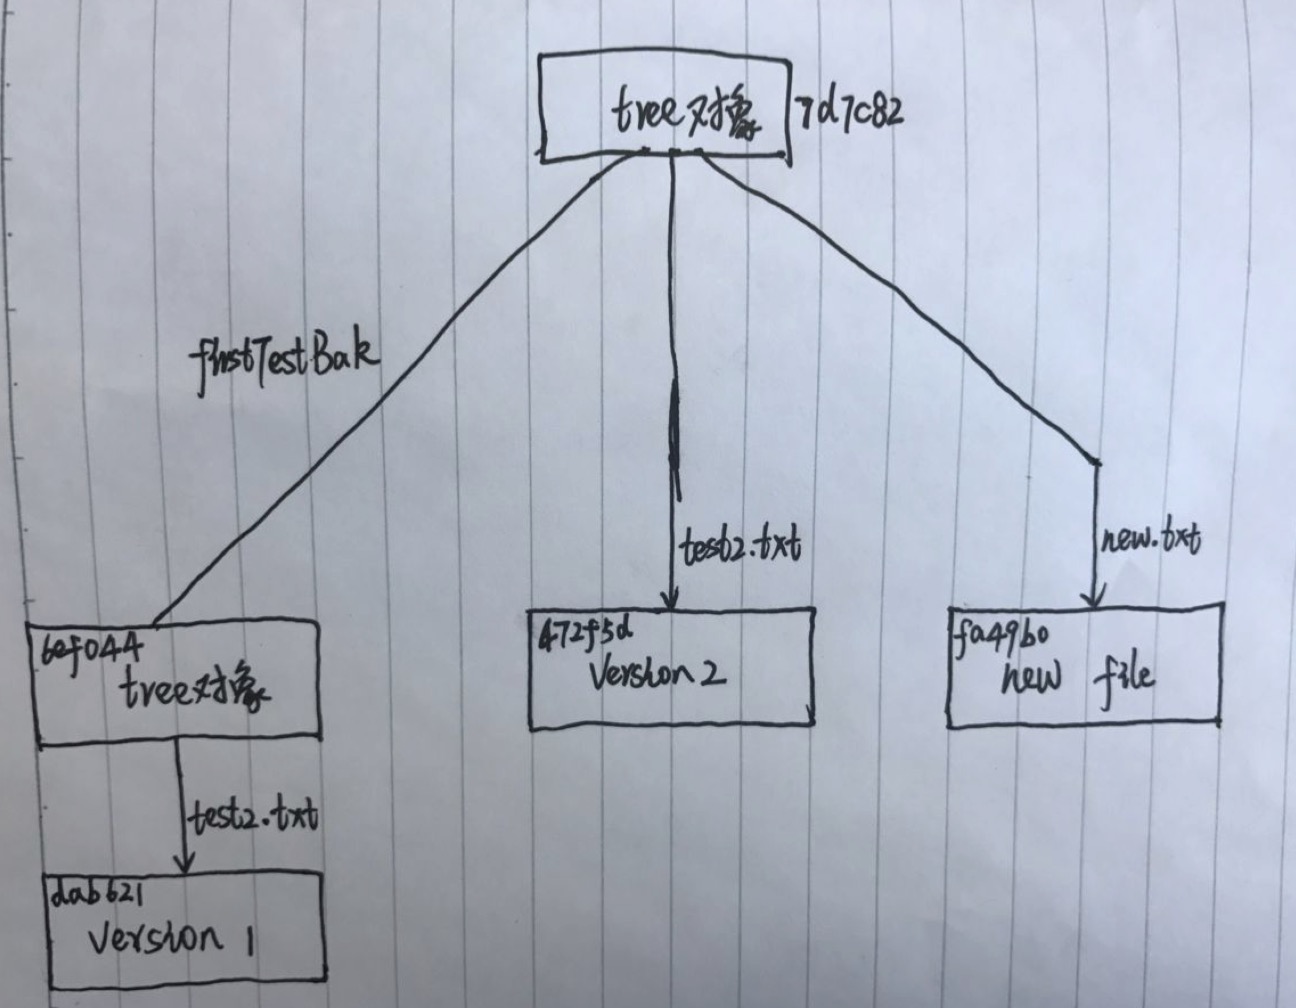 tree对象
7d7c82
firstTestBak
test2.txt
new.txt
6ef044
tree对象
472f5d
Version 2
fa49b0
new file
test2.txt
dab621
Version 1